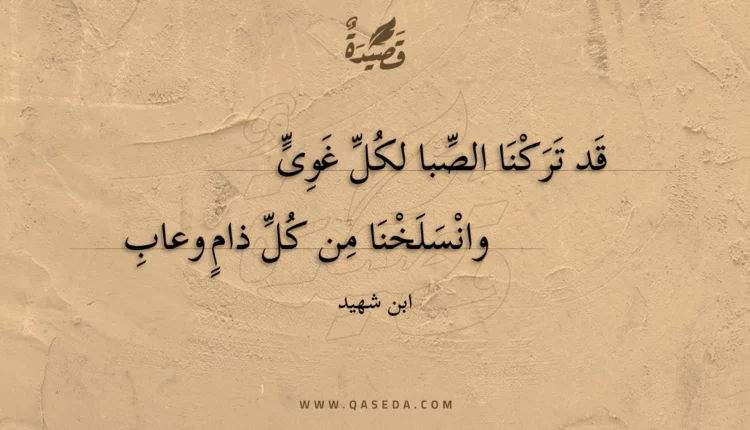 قَصِيدَةٌ
قَد تَرَكْنَا الصِّبا لكُلِّ غَوِيٍّ
وانْسَلَخْنَا مِن كُلِّ ذامٍ وعابِ
ابن شهيد
WWW.QASEDA.COM